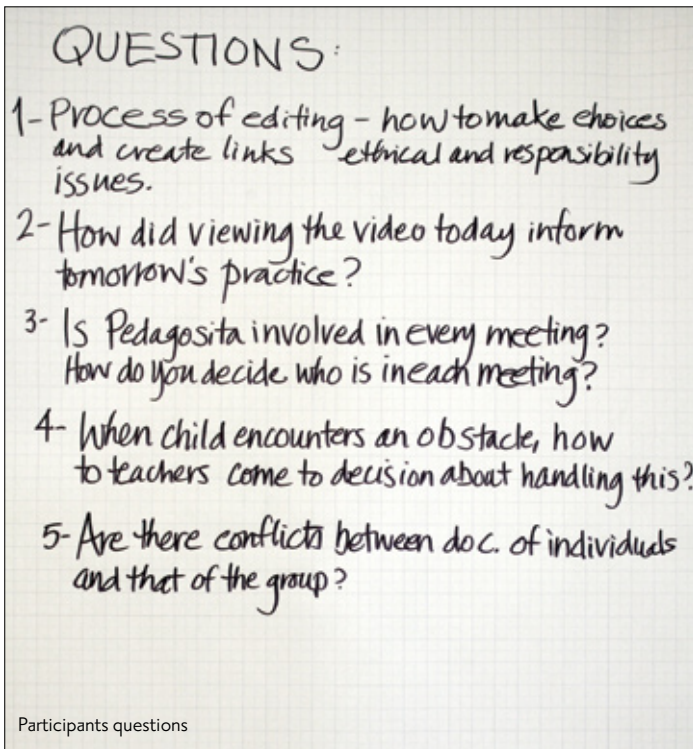 QUESTIONS:
1- Process of editing - how to make choices
and create links ethical and responsibility
issues.
2- How did viewing the video today inform
tomorrow's practice?
3- Is Pedagosita involved in every meeting?
How do you decide who is in each meeting?
4- When child encounters an obstacle, how
to teachers come to decision about handling this?
5- Are there conflicts between doc. of individuals
and that of the group?
Participants questions